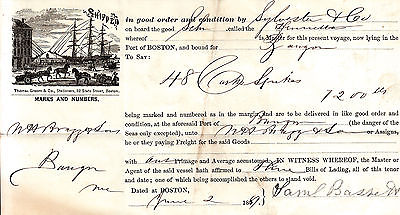 SHIPPED
in good order and condition by Sylvester & Co
on board the good Sch called the Henrietta
whereof is Master for the present voyage, now lying in the
Port of BOSTON, and bound for Bangor
To Say:
THOMAS GROOM & CO., Stationers, 82 State Street, Boston.
MARKS AND NUMBERS.
48 Casks Spikes
7200 lbs
being marked and numbered as in the margin, and are to be delivered in like good order
and condition, at the aforesaid Port of Bangor (the danger of the
Seas only excepted), unto or Assigns,
he or they paying Freight for the said Goods
with Primage and Average accustomed. IN WITNESS WHEREOF, the Master or
Agent of the said vessel hath affirmed to three Bills of Lading, all of this tenor and
date; one of which being accomplished the others to stand void.
Bangor
Me
Dated at BOSTON, June 2 186
Saml Basse